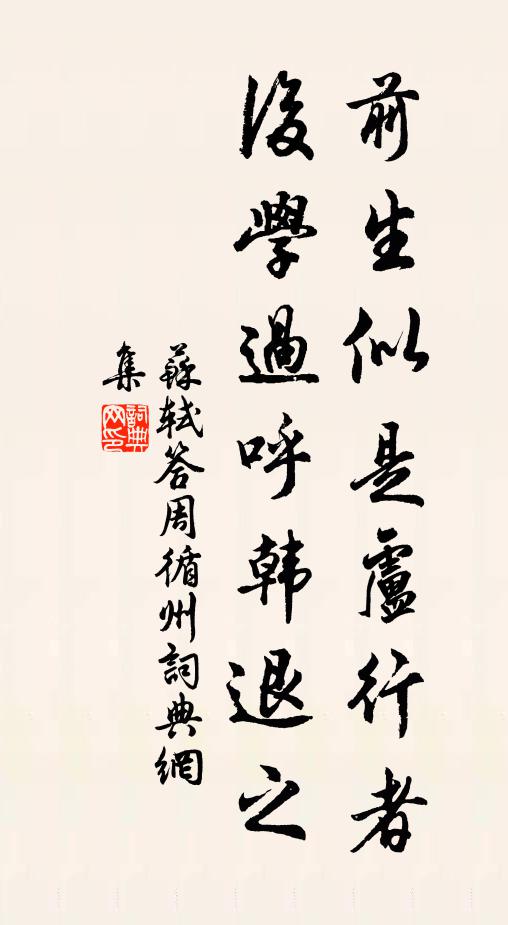 前生似是盧行者
後學過呼韩退之
蘇軾答周循州詞典網
集
詞典
网印